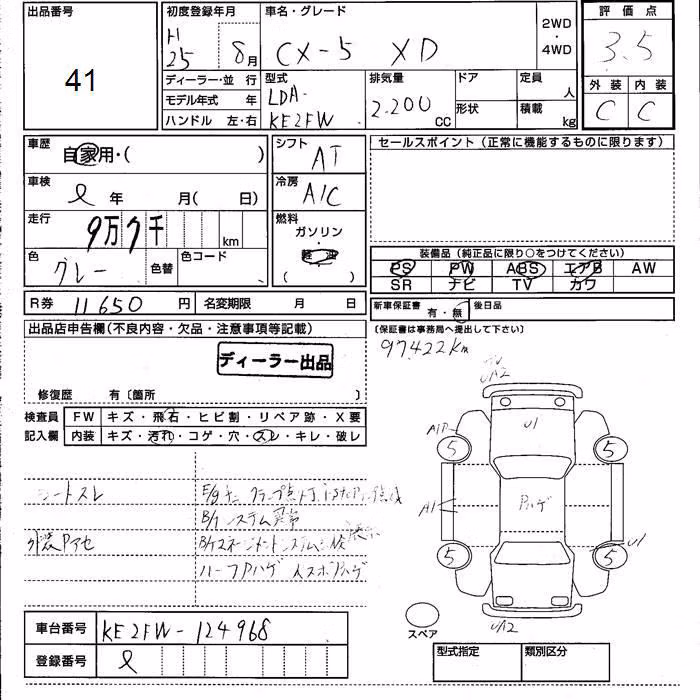 出品番号
41
初度登録年月
H
25 8月
車名・グレード
CX-5 XD
2WD
・
4WD
評価点
3.5
外装 内装
C C
ディーラー・並 行
モデル年式 年
ハンドル 左・右
型式
LDA-
KE2FW
排気量
2.200
CC
ドア
形状
定員
人
積載
kg
車歴
自家用・( )
車検
年 月( 日)
走行
9万7千
km
色
グレー
色替
色コード
シフト
AT
冷房
A/C
燃料
ガソリン
・
( 軽油 )
セールスポイント(正常に機能するものに限ります)
装備品(純正品に限り○をつけてください)
PS PW ABS エアB AW
SR ナビ TV カワ
R券 11650 円 名変期限 月 日
新車保証書 有・無 後日品
(保証書は事務局へ提出して下さい)
97422km
出品店申告欄(不良内容・欠品・注意事項等記載)
ディーラー出品
修復歴 有〔箇所 〕
検査員 FW キズ・飛石・ヒビ割・リペア跡・X要
記入欄 内装 キズ・汚れ・コゲ・穴・スレ・キレ・破レ
シートスレ
外装Pアセ
B/Iシステム異常
ハーフPハゲ
UA2
U1
A1P
5 5
A1
Pハゲ
5 5
U1
UA2
スペア
車台番号 KE2FW-124968
登録番号
型式指定 類別区分